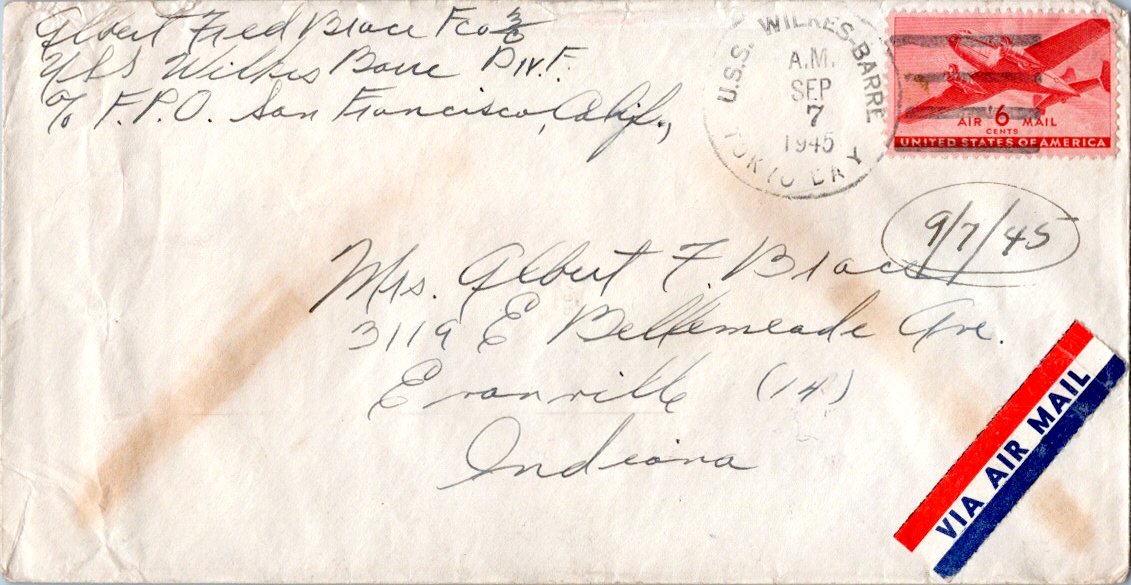 Albert Fred Brace Fco 3/c
USS Wilkes Barre Div. F.
c/o F.P.O. San Francisco, Calif.,
U.S.S. WILKES-BARRE
A.M.
SEP
7
1945
TOKYO BAY
AIR 6 MAIL
CENTS
UNITED STATES OF AMERICA
9/7/45
Mrs. Albert F. Brace
3119 E Bellemeade Ave.
Evansville (14)
Indiana
VIA AIR MAIL